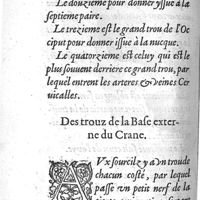 Le douziéme pour donner yssue à la
septieme paire.
Le trezieme est le grand trou de l'Oc
ciput pour donner issue à la nucque.
Le quatorzieme est celuy qui est le
plus souuent derriere ce grand trou, par
lequel entrent les arteres & veines Cer
uicalles.
Des trouz de la Base exter-
ne du Crane.
AVx sourcilz y a vn trou de
chacun costé, par lequel
passe vn petit nerf de la